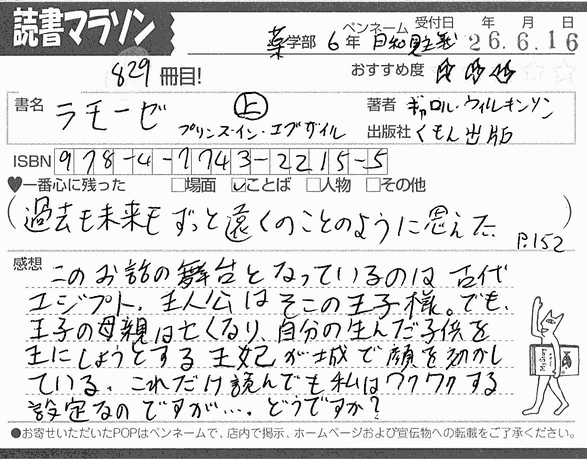 読書マラソン
ペンネーム 受付日 年 月 日
薬学部 6年 日和見主義 26.6.16
829冊目! おすすめ度
書名 ラモーゼ 上 プリンス・イン・エグザイル
著者 キャロル・ウィルキンソン
出版社 くもん出版
ISBN 978-4-7743-2215-5
♥一番心に残った □場面 ☑ことば □人物 □その他
(過去も未来もずっと遠くのことのように思えた P.152)
感想 このお話の舞台となっているのは古代
エジプト。主人公はそこの王子様。でも、
王子の母親は亡くなり、自分の生んだ子供を
王にしようとする王妃が城で顔を効かし
ている。これだけ読んでも私はワクワクする
設定なのですが…。どうですか?
●お寄せいただいたPOPはペンネームで、店内で掲示、ホームページおよび宣伝物への転載をご了承ください。